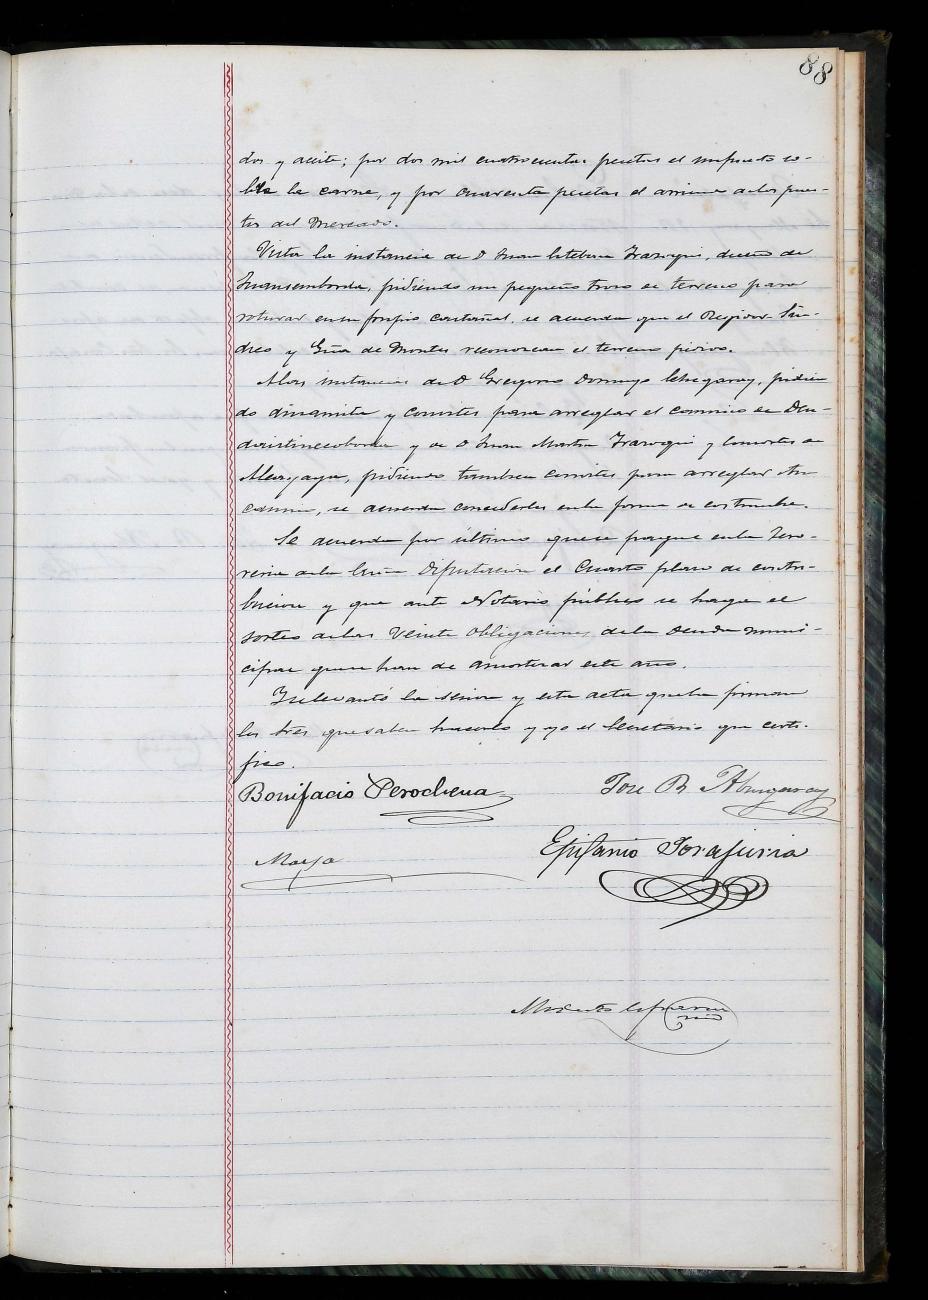 88
dos y aceite; por dos mil cuatrocientas pesetas el impuesto so-
bre la carne, y por cuarenta pesetas el arriendo de los pues-
tos del Mercado.
Vista la instancia de D Juan Esteban Irazoqui, dueño de
pidiendo un pequeño trozo de terreno para
roturar en su propio castañal, se acuerda que el Regidor Sín-
dico y Guía de Montes reconozcan el terreno pedido.
A las instancias de D Gregorio Domingo Echegaray, pidien
do dinamita y convites para arreglar el camino de
y de D Juan Martin Irazoqui y consortes de
pidiendo tambien convites para arreglar otro
camino, se acuerda concederles en la forma de costumbre.
Se acuerda por último que se pague en la Teso-
rería de la Excma Diputación el cuarto plazo de contri-
bucion y que ante Notario público se haga el
sorteo de las veinte obligaciones de la Deuda muni-
cipal que se han de amortizar este año.
Y se levantó la sesion y esta acta que la firman
los tres que saben hacerlo y yo el Secretario que certi-
fico.
Bonifacio Perochena
Jose B.
Epifanio